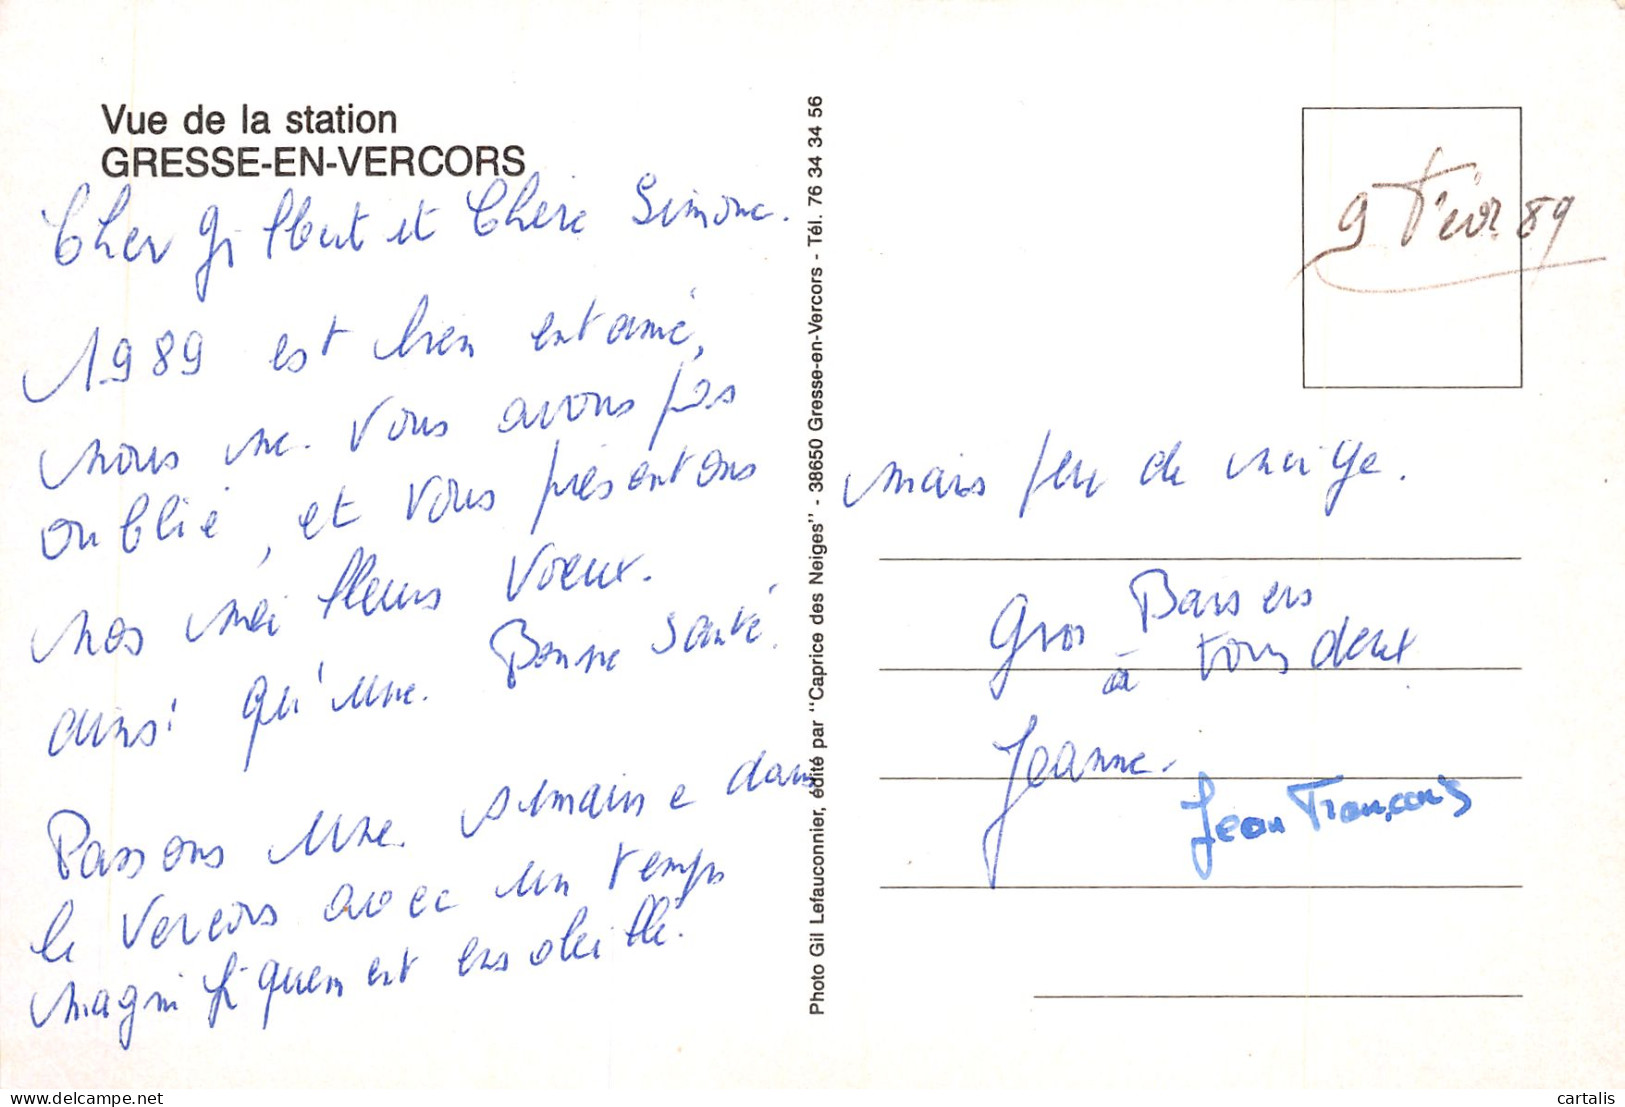 Vue de la station
GRESSE-EN-VERCORS
Cher Gilbert et Chère Simone.
1989 est bien entamé,
nous ne vous avons pas
oublié, et vous présentons
nos meilleurs voeux.
ainsi qu'une Bonne Santé.
Passons une semaine dans
le Vercors avec un temps
magnifiquement ensoleillé.
Photo Gil Lefauconnier, édité par "Caprice des Neiges" - 38650 Gresse-en-Vercors - Tél. 76 34 34 56
9 Févr. 89
mais peu de neige.
Gros Baisers
à tous deux
Jeanne.
Jean François
delcampe.net
cartalis